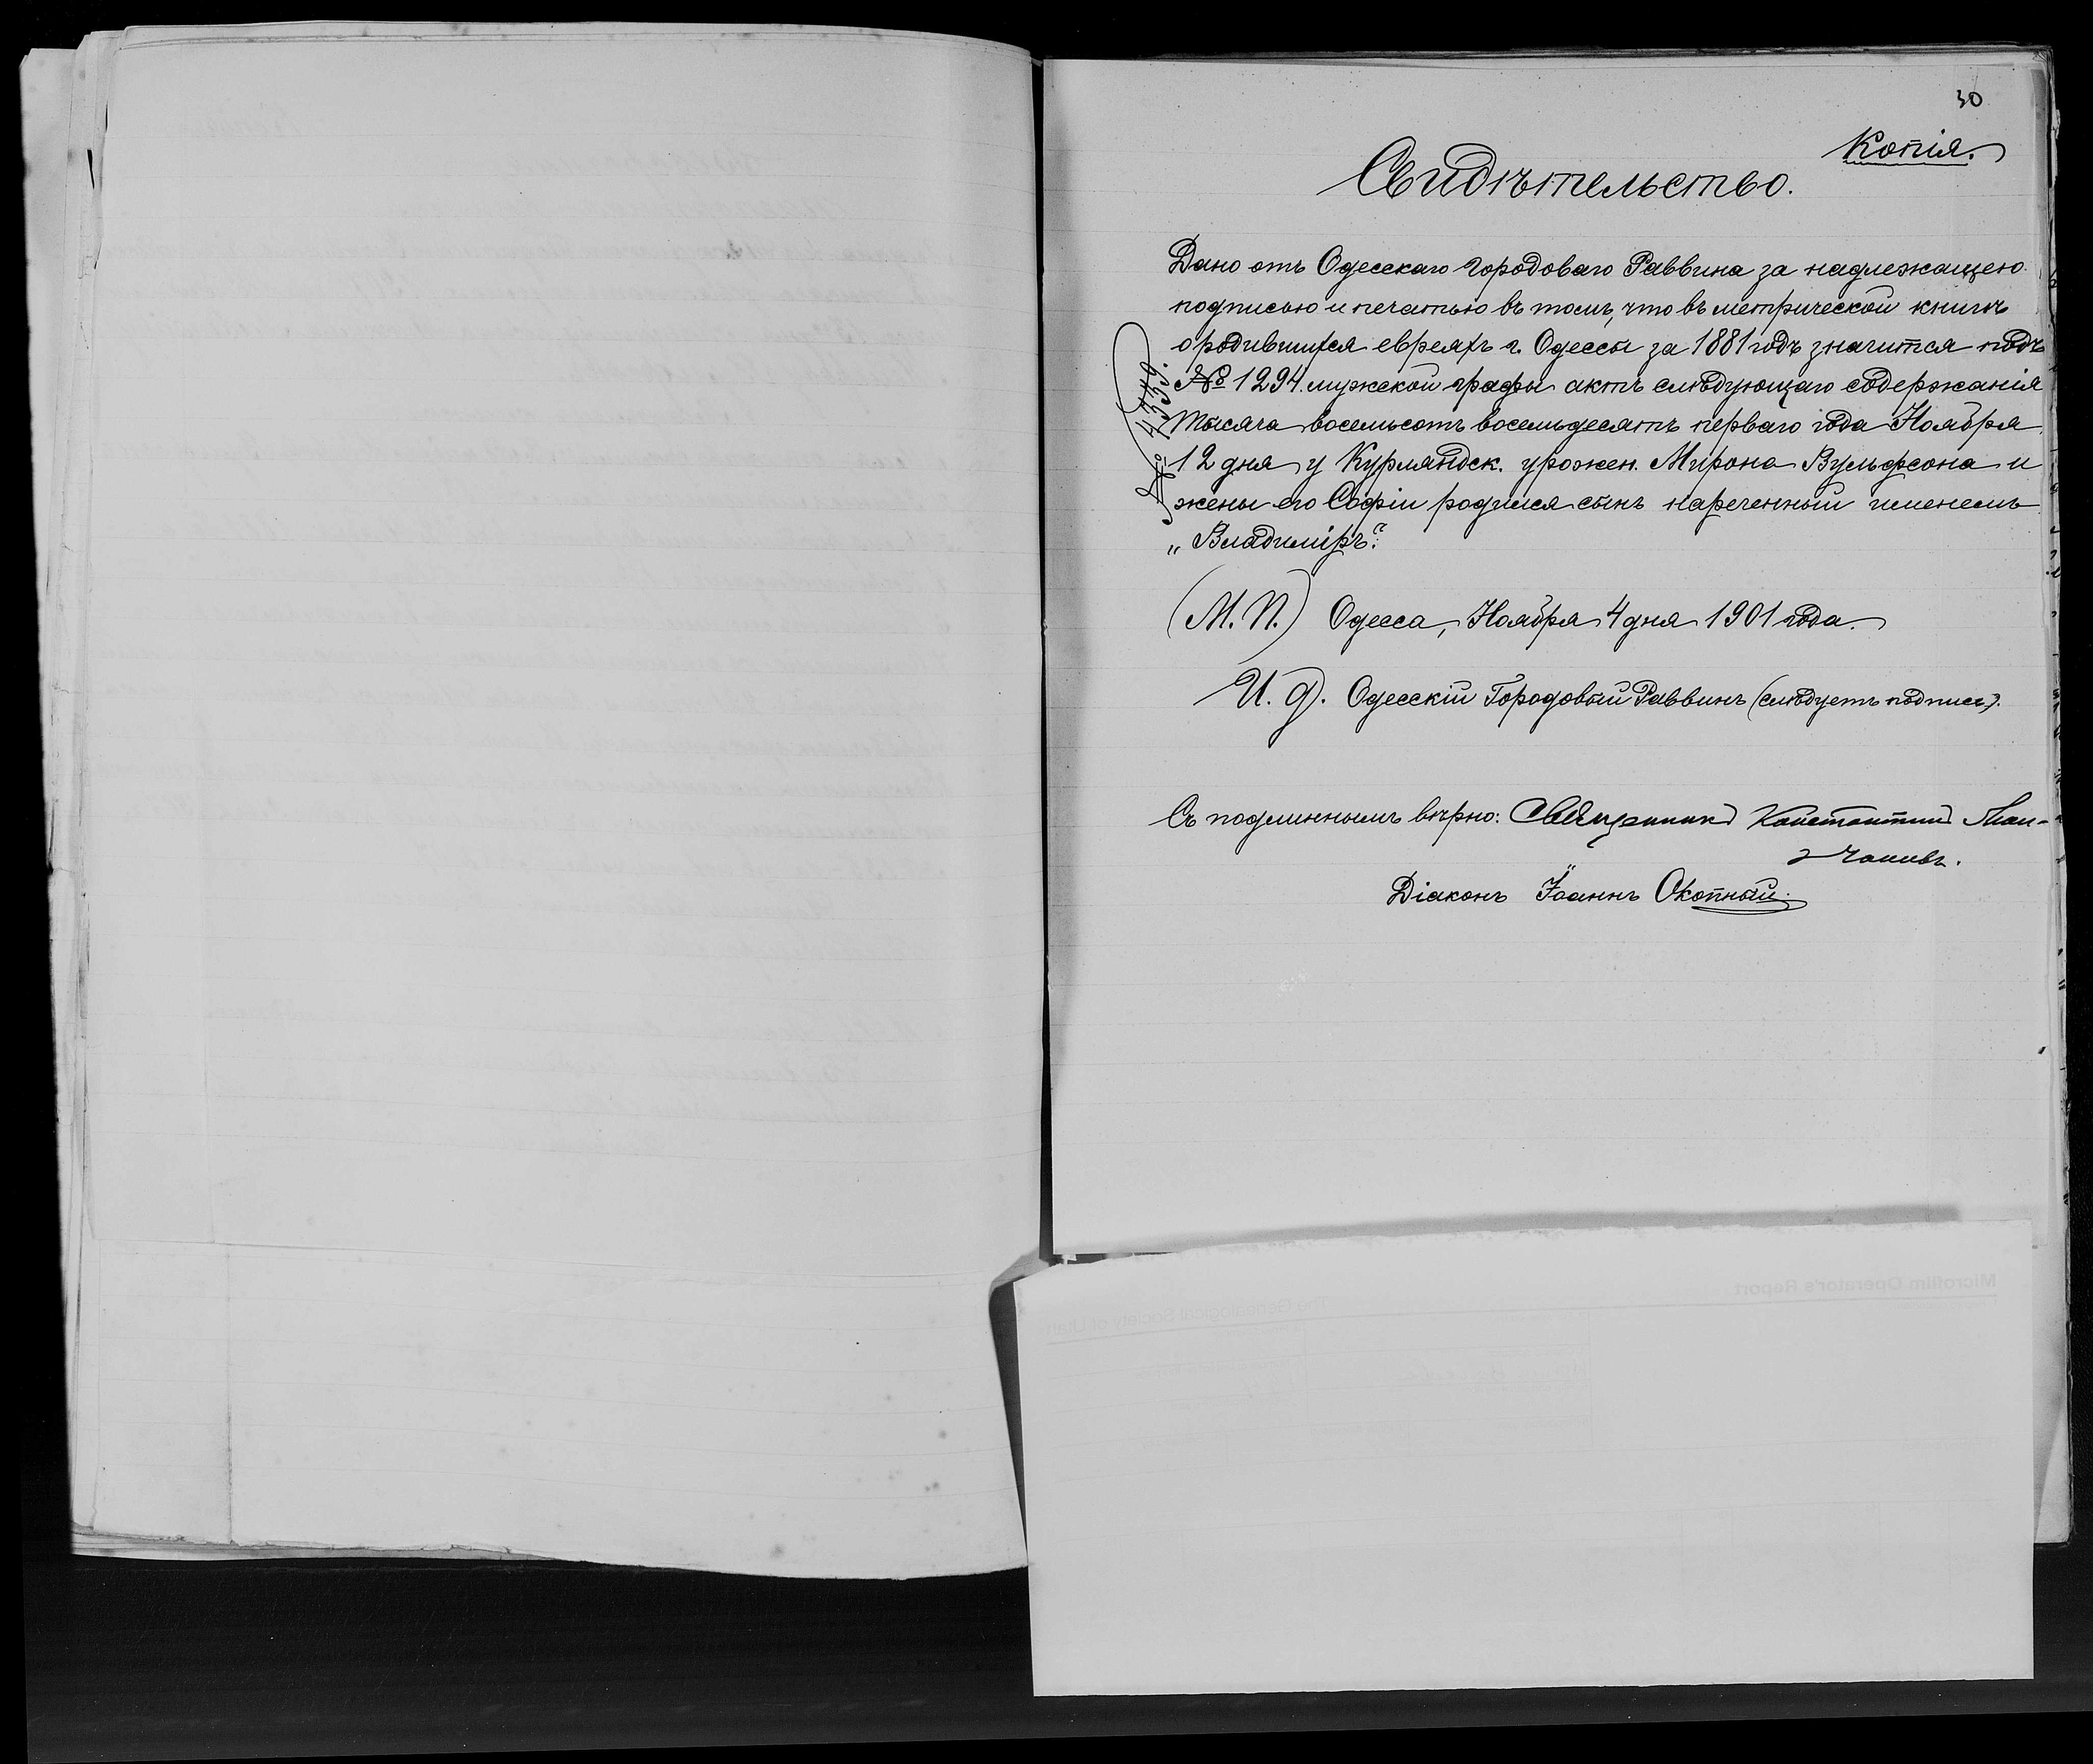 30
Копія.
Свидѣтельство.
Дано отъ Одесскаго Городоваго Раввина за надлежащею
подписью и печатью въ томъ, что въ метрической книгѣ
о родившихся евреяхъ г. Одессы за 1881 годъ значится подъ
№ 1294 мужской графы актъ слѣдующаго содержанія
Тысяча восемьсотъ восемьдесятъ перваго года Ноября
12 дня у Курляндск. урожен. Мирона Вульфсона и
жены его Софіи родился сынъ нареченный именемъ
„Владиміръ“.
№ 4339.
(М. П.) Одесса, Ноября 4 дня 1901 года.
И. д. Одесскій Городовый Раввинъ (слѣдуетъ подпись).
Съ подлиннымъ вѣрно: Священникъ Константинъ
Діаконъ Іоаннъ Окопный.
Microfilm Operator's Report
The Genealogical Society of Utah